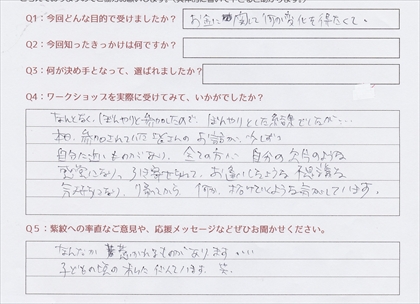 Q1：今回どんな目的で受けましたか？ お金に関して何か変化を得たくて。
Q2：今回知ったきっかけは何ですか？
Q3：何が決め手となって、選ばれましたか？
Q4：ワークショップを実際に受けてみて、いかがでしたか？
なんとなく、ぼんやりと参加したので、ぼんやりとした感覚でしたが…
参加されていた皆さんのお話が、少しずつ
自分に近いものがあり、全ての方が自分の欠片のような
感覚になり、引き寄せ合って、お逢いしたような不思議な
気持ちになり、帰ってから何か、溶けていくような気がしています。
Q5：紫紋への率直なご意見や、応援メッセージなどぜひお聞かせください。
なんだか惹かれるものがあります…
子どもの頃の私に似ています。笑